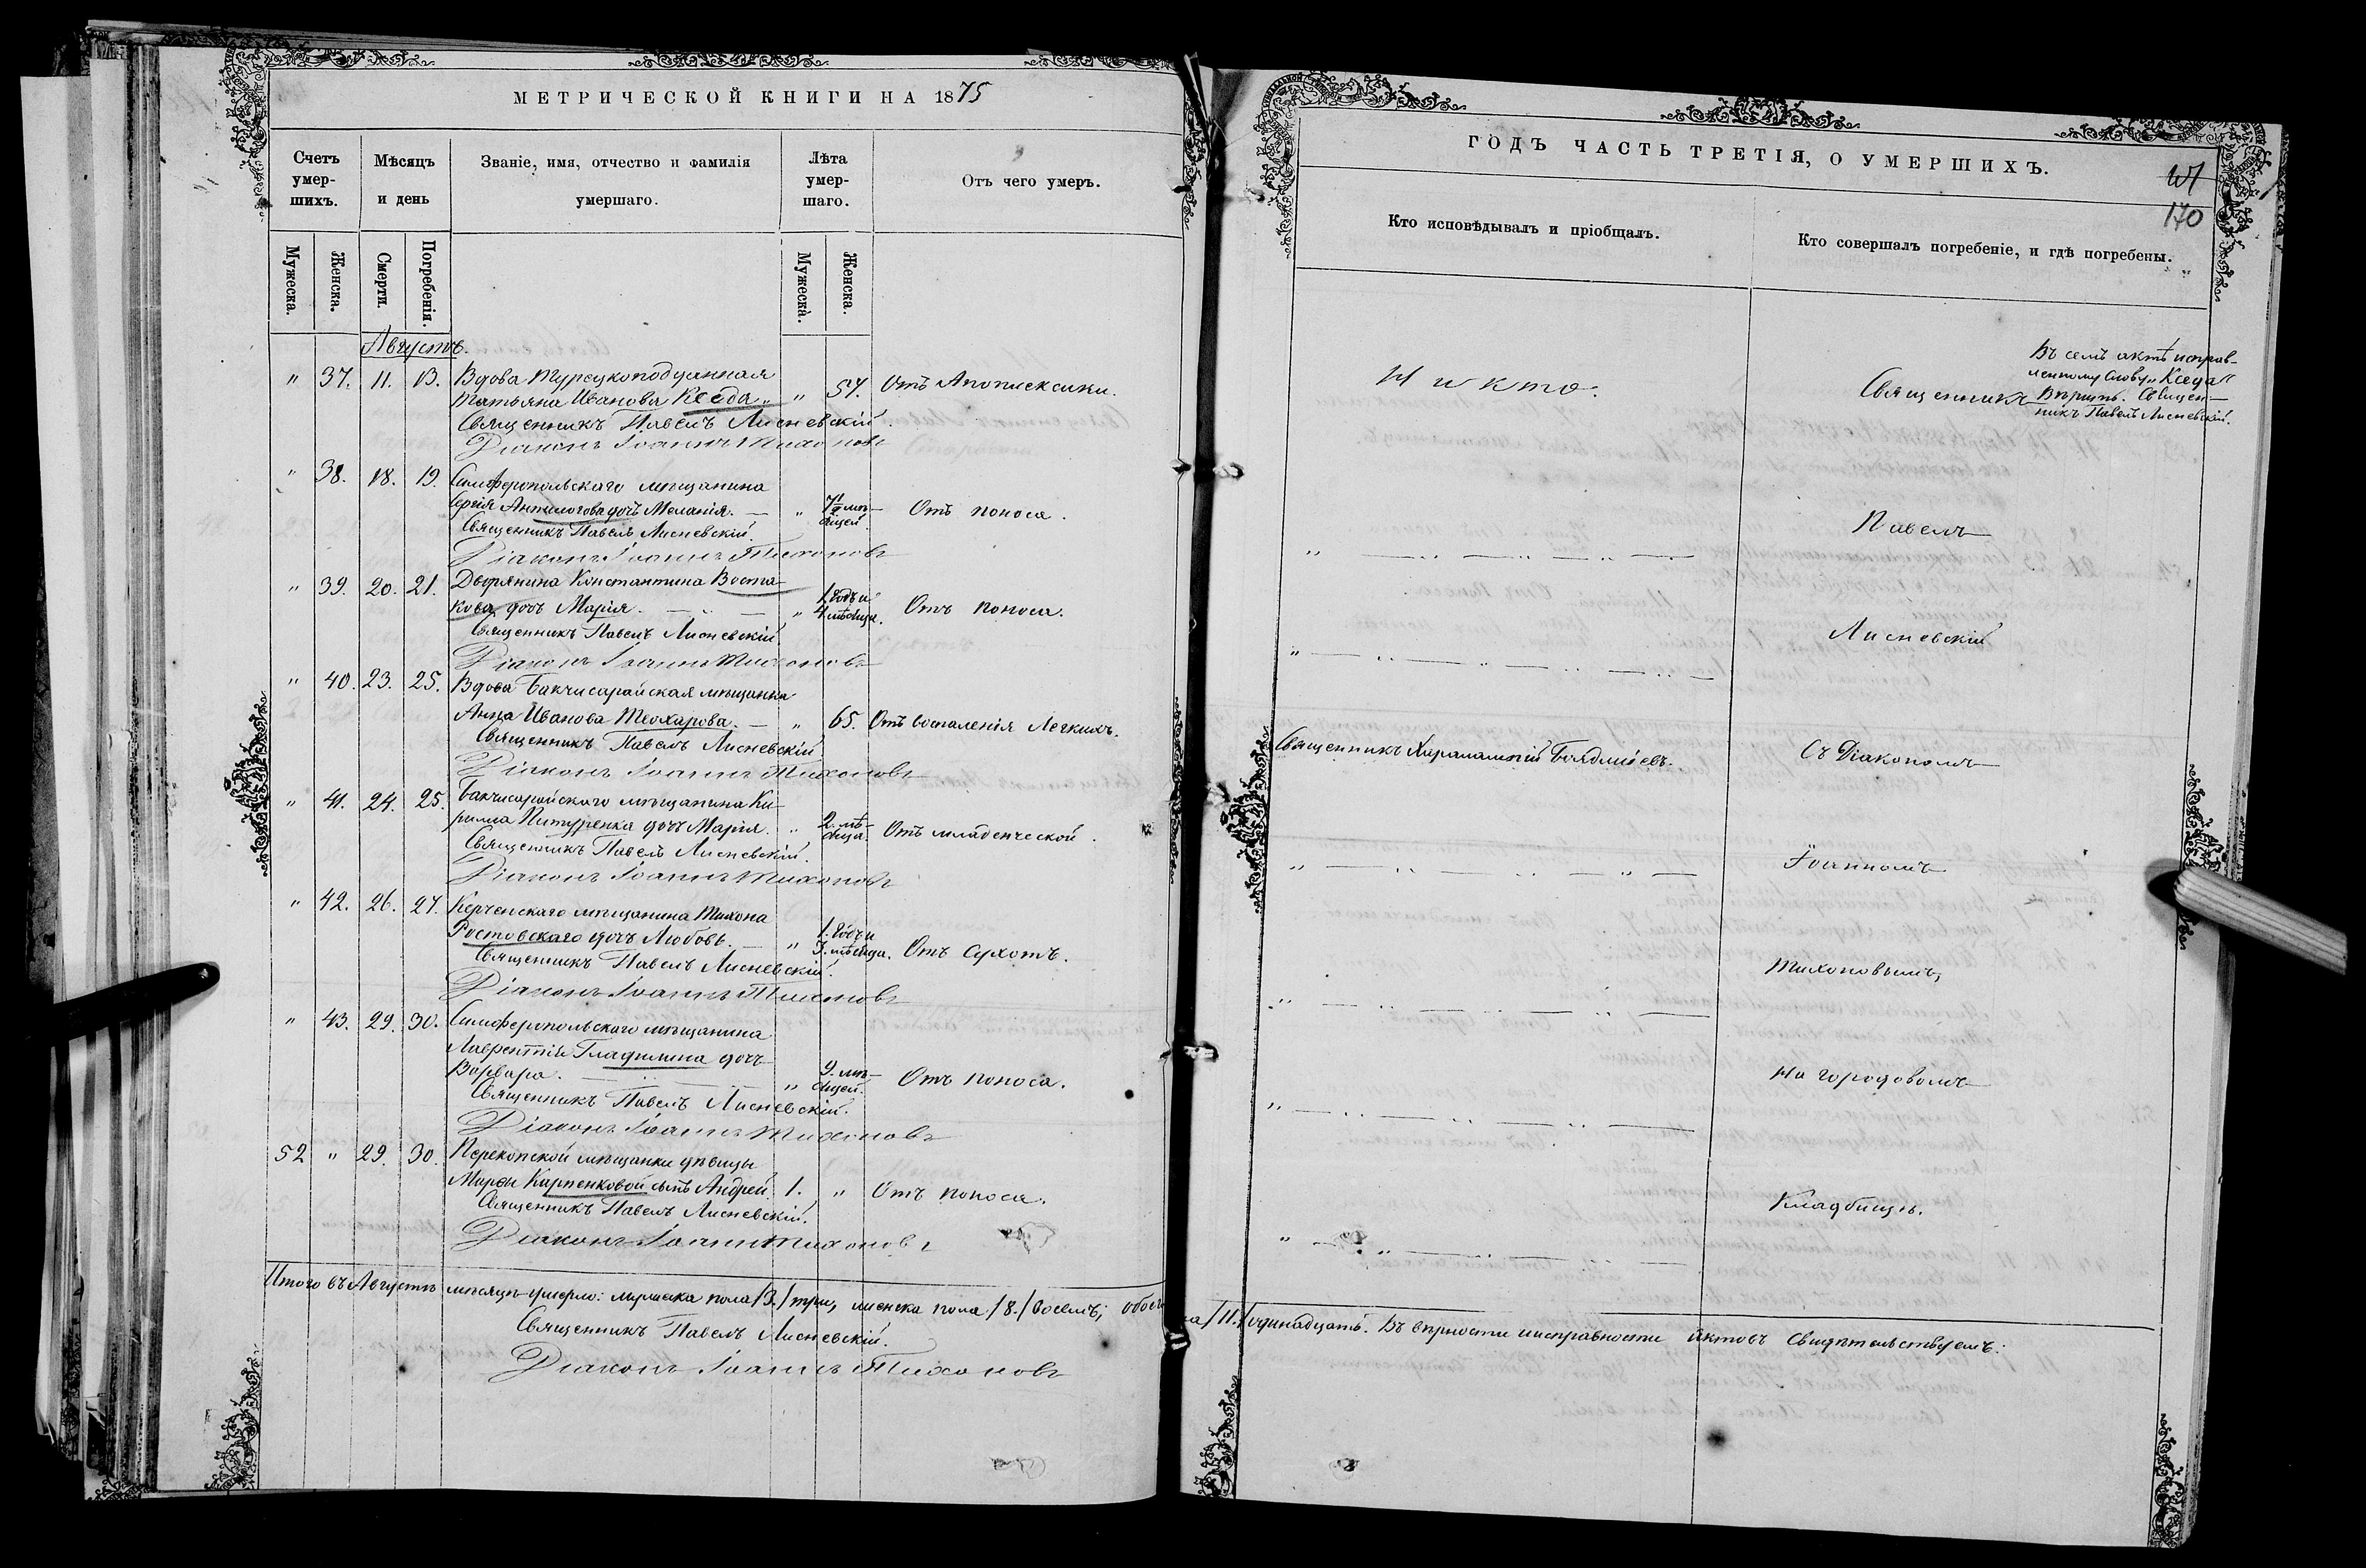 МЕТРИЧЕСКОЙ КНИГИ НА 1875
Счетъ умер-шихъ.
Мѣсяцъ и день
Званіе, имя, отчество и фамилія умершаго.
Лѣта умер-шаго.
Отъ чего умеръ.
Мужеска.
Женска.
Смерти.
Погребенія.
Мужеска.
Женска.
Августъ.
" 37. 11. 13. Вдова Турецкоподданная
Татьяна Иванова Кседа " " 57. Отъ Апоплексики.
Священникъ Павелъ Лисневскій.
Діаконъ Іоаннъ Тихоновъ
" 38. 18. 19. Симферопольскаго мѣщанина
Сергія Антилогова дочь Меланія. — " мѣ-
сяцей. Отъ поноса.
Священникъ Павелъ Лисневскій.
Діаконъ Іоаннъ Тихоновъ
" 39. 20. 21. Дворянина Константина Воста-
кова дочь Марія. — " — " 1. годъ и
4 мѣсяца. Отъ поноса.
Священникъ Павелъ Лисневскій.
Діаконъ Іоаннъ Тихоновъ
" 40. 23. 25. Вдова Бакчисарайская мѣщанка
Анна Иванова Теохарова. — " 65. Отъ воспаленія Легкихъ.
Священникъ Павелъ Лисневскій
Діаконъ Іоаннъ Тихоновъ
" 41. 24. 25. Бакчисарайскаго мѣщанина Ки-
рилла Питуренка дочь Марія. " 2. мѣ-
сяца. Отъ младенческой.
Священникъ Павелъ Лисневскій.
Діаконъ Іоаннъ Тихоновъ
" 42. 26. 27. Керченскаго мѣщанина Тихона
Ростовскаго дочь Любовь. — " 1. годъ и
3. мѣсяца. Отъ Сухотъ.
Священникъ Павелъ Лисневскій.
Діаконъ Іоаннъ Тихоновъ
" 43. 29. 30. Симферопольскаго мѣщанина
Лаврентія Гладилина дочь
Варвара. — " — " 9. мѣ-
сяцей. Отъ поноса.
Священникъ Павелъ Лисневскій.
Діаконъ Іоаннъ Тихоновъ
52 " 29. 30. Перекопской мѣщанки дѣвицы
Марфы Карпенковой сынъ Андрей. 1. " Отъ поноса.
Священникъ Павелъ Лисневскій.
Діаконъ Іоаннъ Тихоновъ
Итого въ Августѣ мѣсяцѣ умерло: мужеска пола /3./ три, женска пола /8./ восемь; обоего
Священникъ Павелъ Лисневскій.
Діаконъ Іоаннъ Тихоновъ
ГОДЪ ЧАСТЬ ТРЕТІЯ, О УМЕРШИХЪ.
170
Кто исповѣдывалъ и пріобщалъ.
Кто совершалъ погребеніе, и гдѣ погребены.
Въ семъ актѣ исправ-
ленному слову „Кседа"
вѣрить. Священ-
никъ Павелъ Лисневскій.
Никто.
Священникъ
Павелъ
Лисневскій
Священникъ Харалампій Бояджіевъ.
Съ Діакономъ
Іоанномъ
Тихоновымъ,
На городовомъ
Кладбищѣ.
/11./ одинадцать. Въ вѣрности и исправности Актовъ Свидѣтельствуемъ: